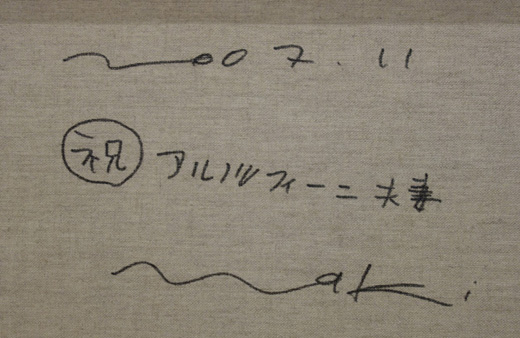 2007.11
㊗ アルノルフィーニ夫妻
maki